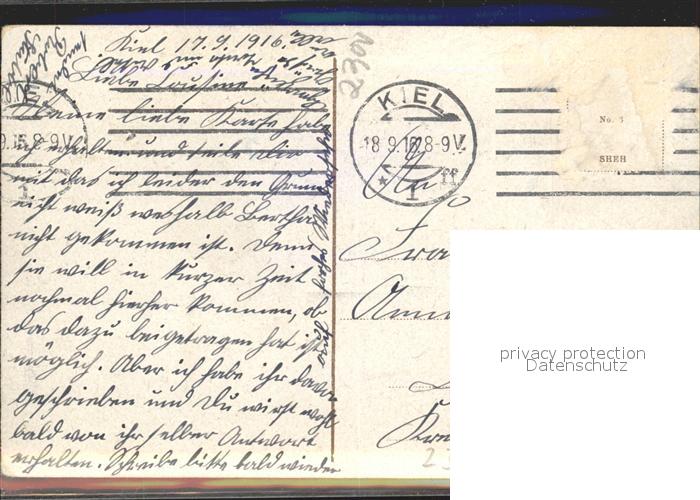 Kiel 17.9.1916.
Liebe Cousine
Deine liebe Karte habe
ich erhalten und teile Dir
mit das ich leider den Grund
nicht weiß weshalb Bertha
nicht gekommen ist. Denn
sie will in kurzer Zeit
nochmal hierher kommen, ob
das dazu beigetragen hat ist
möglich. Aber ich habe ihr davon
geschrieben und Du wirst wohl
bald von ihr selber Antwort
erhalten. Schreibe bitte bald wieder
KIEL
18.9.16.8-9V.
* 1 ff
No. 3
SHEH
An
privacy protection
Datenschutz